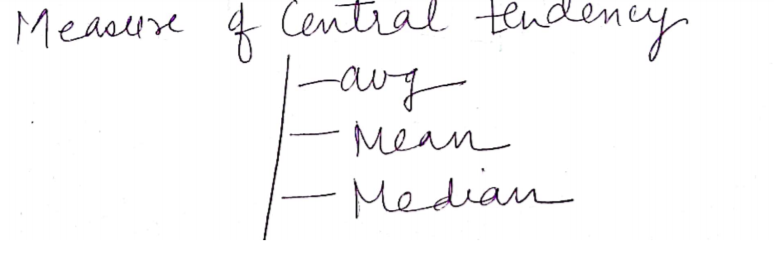 Measure of Central tendency
avg
Mean
Median